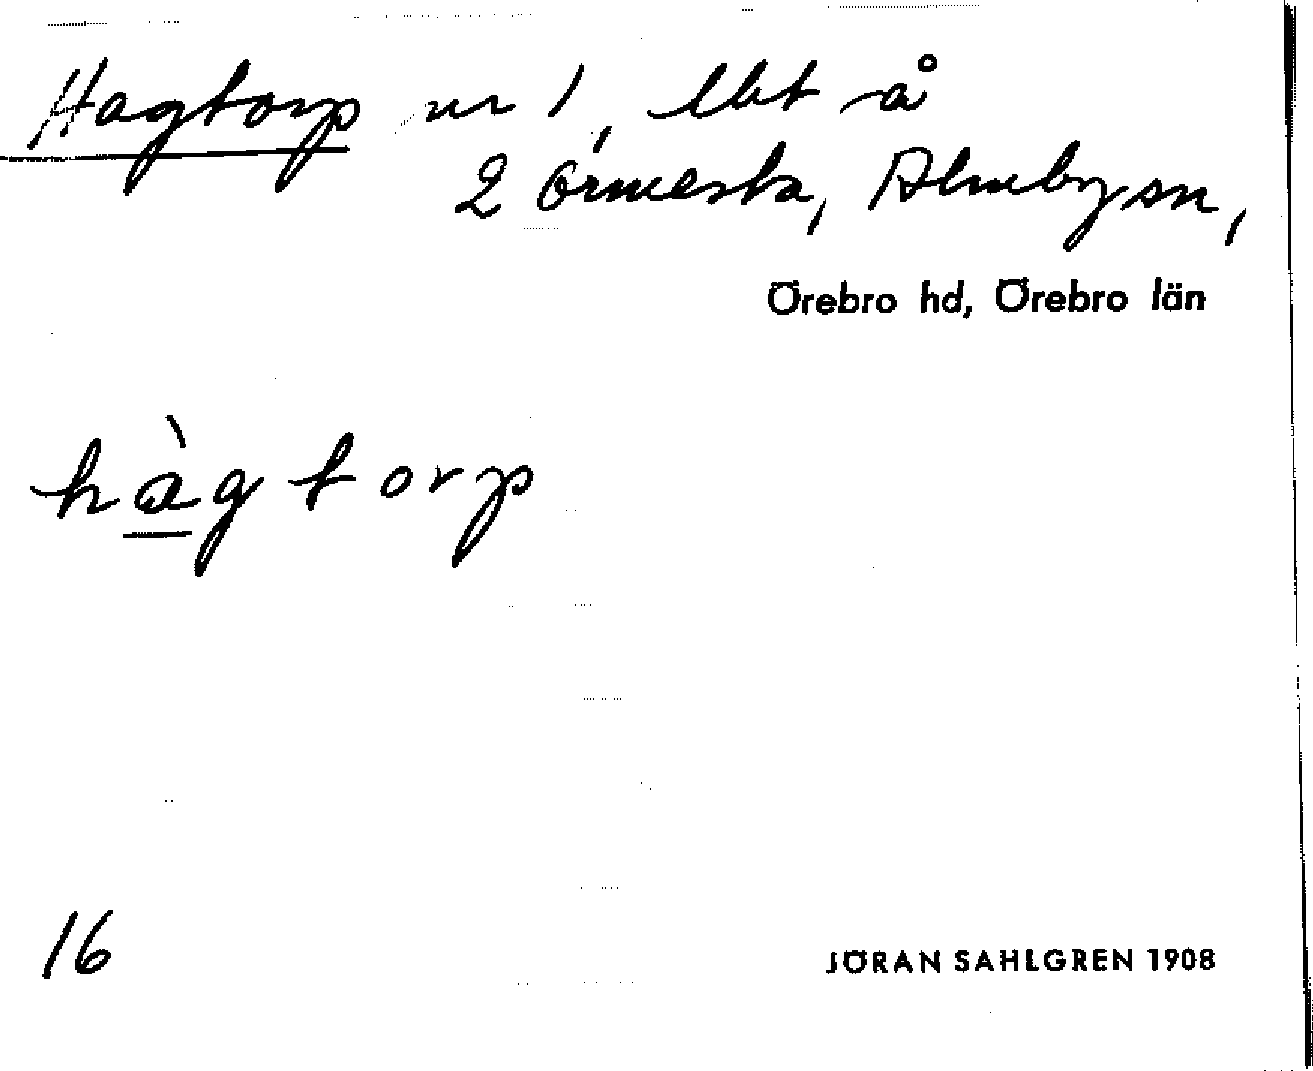 Hagtorp nr 1, lht å
2 Örmesta, Almby sn,
Örebro hd, Örebro län
hàgtorp
16
JÖRAN SAHLGREN 1908